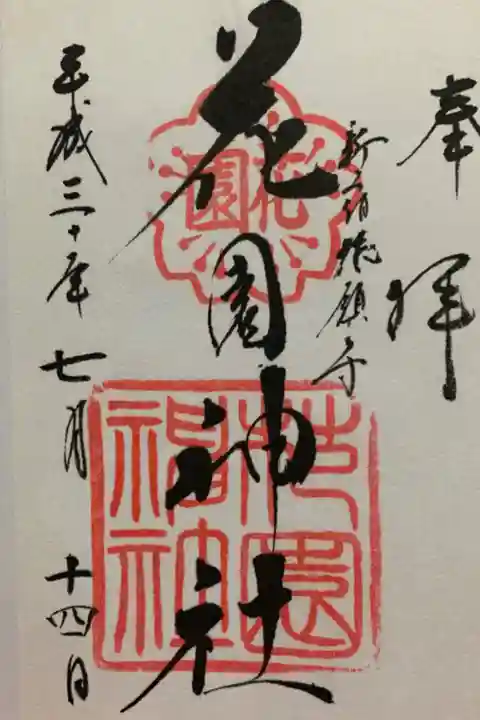 奉拝
新宿総鎮守
花園神社
平成三十年七月十四日
花園
花園神社